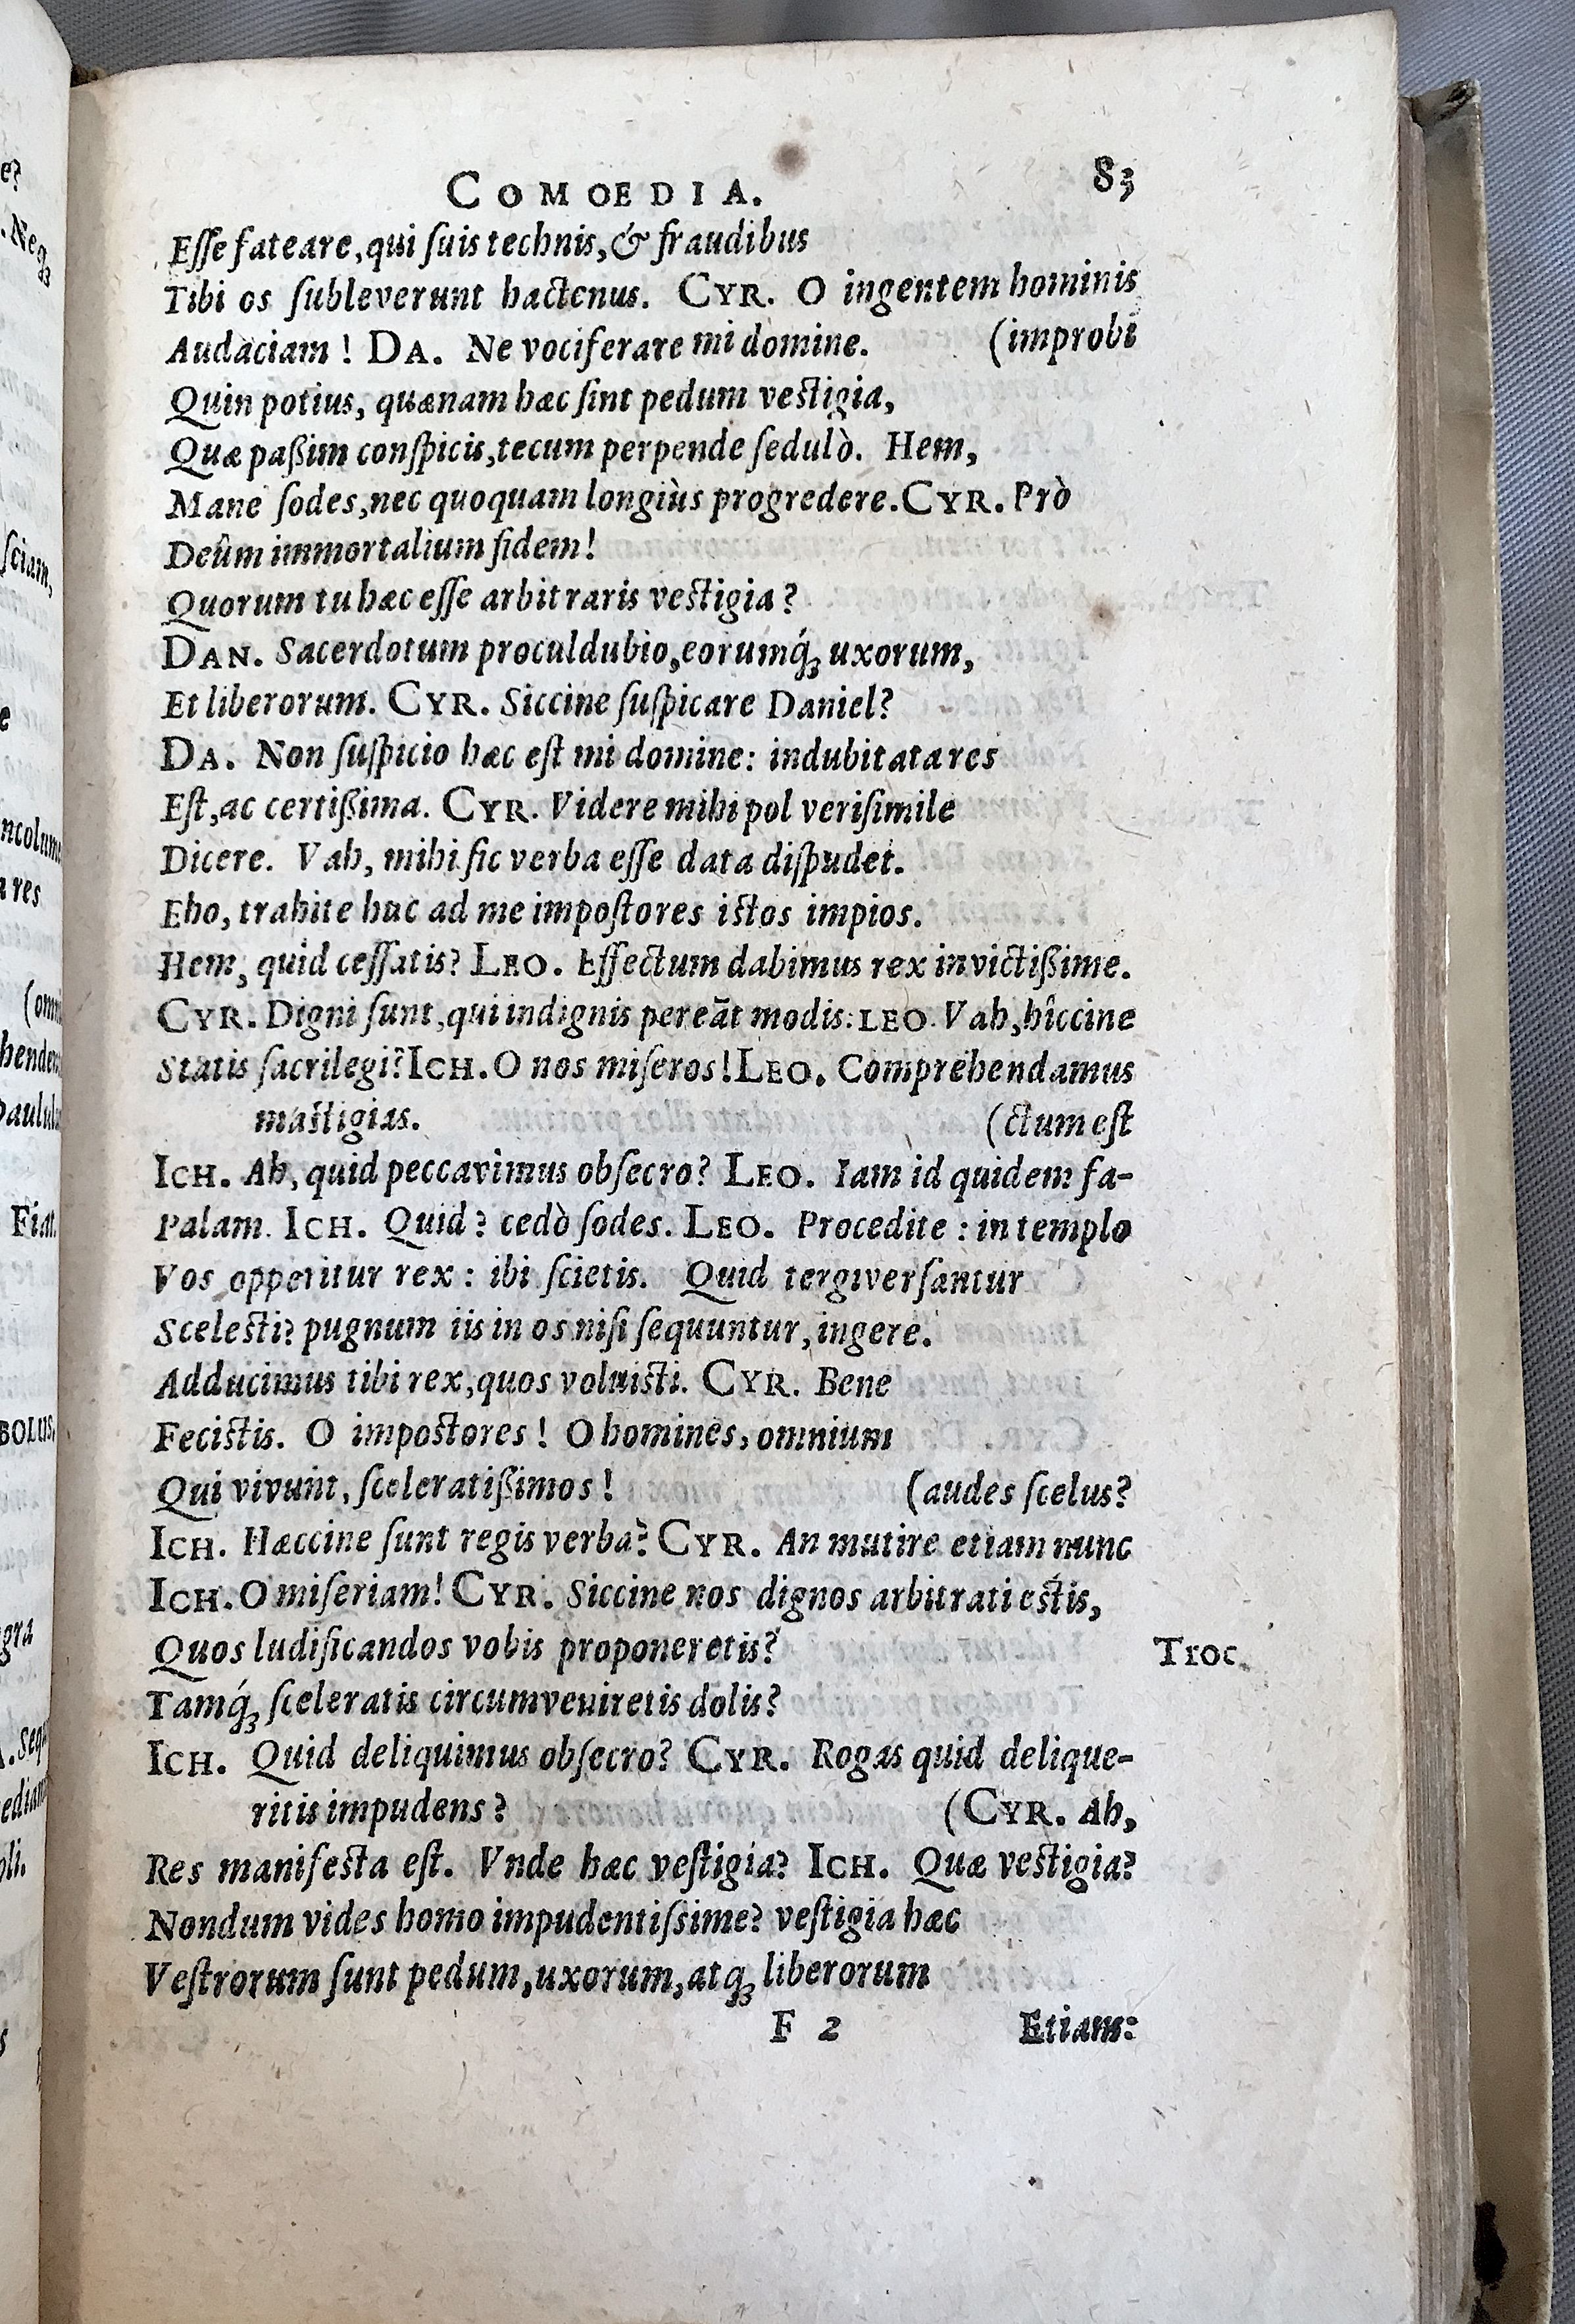 COMOEDIA. 83
Esse fateare, qui suis technis, & fraudibus
Tibi os subleverunt hactenus. CYR. O ingentem hominis
Audaciam! DA. Ne vociferare mi domine. (improbi
Quin potius, quænam hæc sint pedum vestigia,
Quæ paßim conspicis, tecum perpende sedulò. Hem,
Mane sodes, nec quoquam longiùs progredere. CYR. Prò
Deûm immortalium fidem!
Quorum tu hæc esse arbitraris vestigia?
DAN. Sacerdotum proculdubio, eorumq́; uxorum,
Et liberorum. CYR. Siccine suspicare Daniel?
DA. Non suspicio hæc est mi domine: indubitata res
Est, ac certißima. CYR. Videre mihi pol verisimile
Dicere. Vah, mihi sic verba esse data dispudet.
Eho, trahite huc ad me impostores istos impios.
Hem, quid cessatis? LEO. Effectum dabimus rex invictißime.
CYR. Digni sunt, qui indignis pereāt modis. LEO. Vah, hîccine
Statis sacrilegi? ICH. O nos miseros! LEO. Comprehendamus
mastigias. (ctum est
ICH. Ah, quid peccavimus obsecro? LEO. Iam id quidem fa-
Palam. ICH. Quid? cedò sodes. LEO. Procedite: in templo
Vos opperitur rex: ibi scietis. Quid tergiversantur
Scelesti? pugnum iis in os nisi sequuntur, ingere.
Adducimus tibi rex, quos voluisti. CYR. Bene
Fecistis. O impostores! O homines, omnium
Qui vivunt, sceleratißimos! (audes scelus?
ICH. Hæccine sunt regis verba? CYR. An mutire etiam nunc
ICH. O miseriam! CYR. Siccine nos dignos arbitrati estis,
Quos ludificandos vobis proponeretis? Troc.
Tamq́; sceleratis circumveniretis dolis?
ICH. Quid deliquimus obsecro? CYR. Rogas quid delique-
ritis impudens? (CYR. Ah,
Res manifesta est. Vnde hæc vestigia? ICH. Quæ vestigia?
Nondum vides homo impudentissime? vestigia hæc
Vestrorum sunt pedum, uxorum, atq; liberorum
F 2 Etiam: